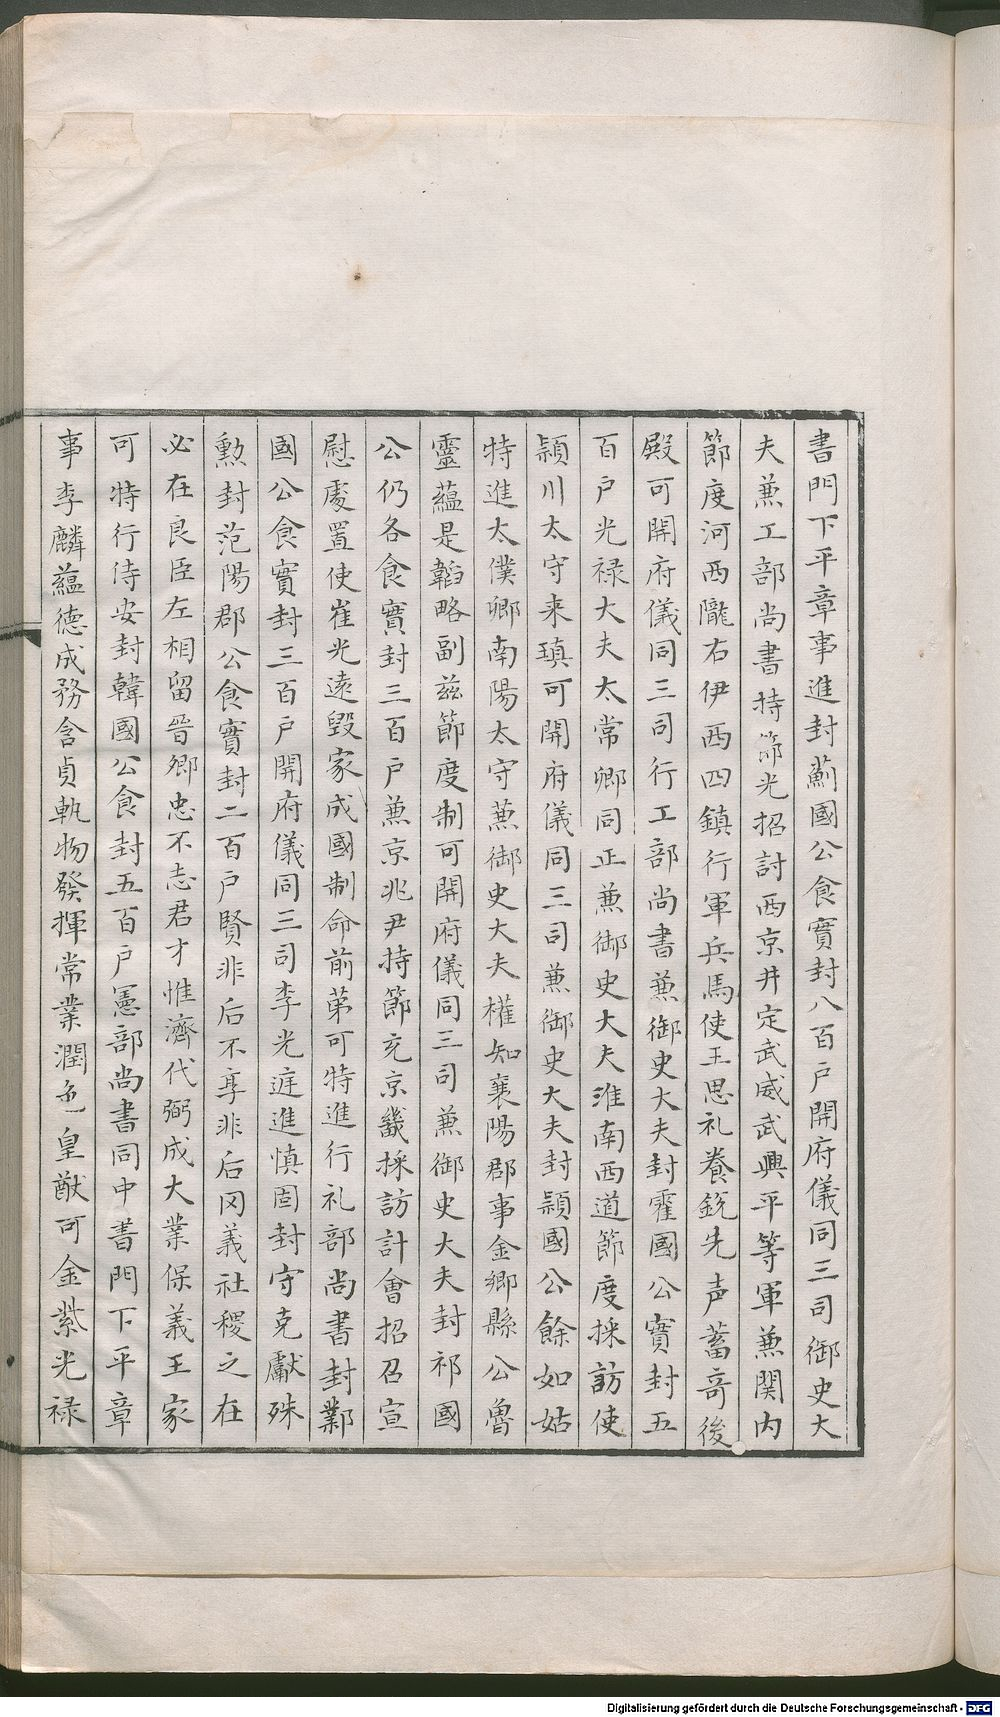 書門下平章事進封薊國公食實封八百戸開府儀同三司御史大
夫蕪工部尚書持節光招討西京井定武威武興平等軍蕪関内
節度河西隴右伊西四鎮行軍兵馬使王思礼養銳先声蓄竒後
殿可開府儀同三司行工部尚書蕪御史大夫封霍國公實封五
百戸光禄大夫太常卿同正蕪御史大夫淮南西道節度採訪使
潁川太守来瑱可開府儀同三司蕪御史大夫封潁國公餘如姑
特進太僕卿南陽太守蕪御史大夫權知襄陽郡事金郷縣公魯
靈蘊是韜略副兹節度制可開府儀同三司蕪御史大夫封祁國
公仍各食實封三百戸蕪京兆尹持節充京畿採訪計會招召宣
慰處置使崔光遠毀家成國制命前苐可特進行礼部尚書封鄴
國公食實封三百戸開府儀同三司李光庭進慎固封守克獻殊
勲封范陽郡公食實封二百戸賢非后不享非后冈義社稷之在
必在良臣左相留晋卿忠不志君才惟濟代弼成大業保義王家
可特行侍安封韓國公食封五百戸憲部尚書同中書門下平章
事李麟蘊德成務含貞軌物發揮常業潤色皇猷可金紫光禄
Digitalisierung gefördert durch die Deutsche Forschungsgemeinschaft - DFG